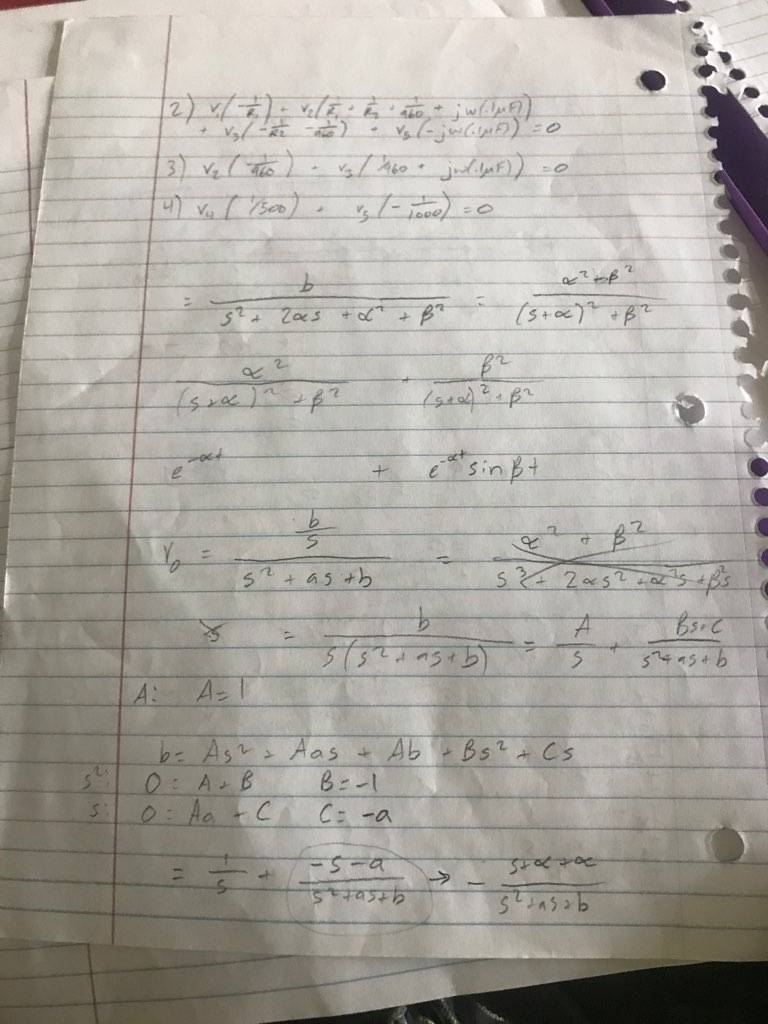 2) v₁(-1/R₁) + v₂(1/R₁ + 1/R₂ + 1/960 + jω(.1μF))
+ v₃(-1/R2 - 1/960) + v₅(-jω(.1μF)) = 0
3) v₂(1/960) - v₃(1/960 + jω(.1μF)) = 0
4) v₄(1/500) + v₅(-1/1000) = 0
= b/(s² + 2αs + α² + β²) = (α² + β²)/((s+α)² + β²)
α²/((s+α)² + β²) + β²/((s+α)² + β²)
e^-αt + e^-αt sin βt
V₀ = (b/s)/(s² + as + b) = (α² + β²)/(s³ + 2αs² + α²s + β²s)
s = b/(s(s² + as + b)) = A/s + (Bs+C)/(s²+as+b)
A: A=1
b = As² + Aas + Ab + Bs² + Cs
s²: 0 = A + B B = -1
s: 0 = Aa + C C = -a
= 1/s + (-s-a)/(s²+as+b) → - (s+α+α)/(s²+as+b)